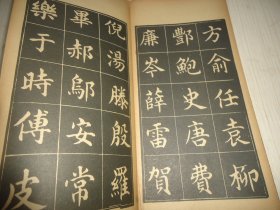 方俞任袁柳
酆鮑史唐費
廉岑薛雷賀
倪湯滕殷羅
畢郝鄔安常
樂于時傅皮